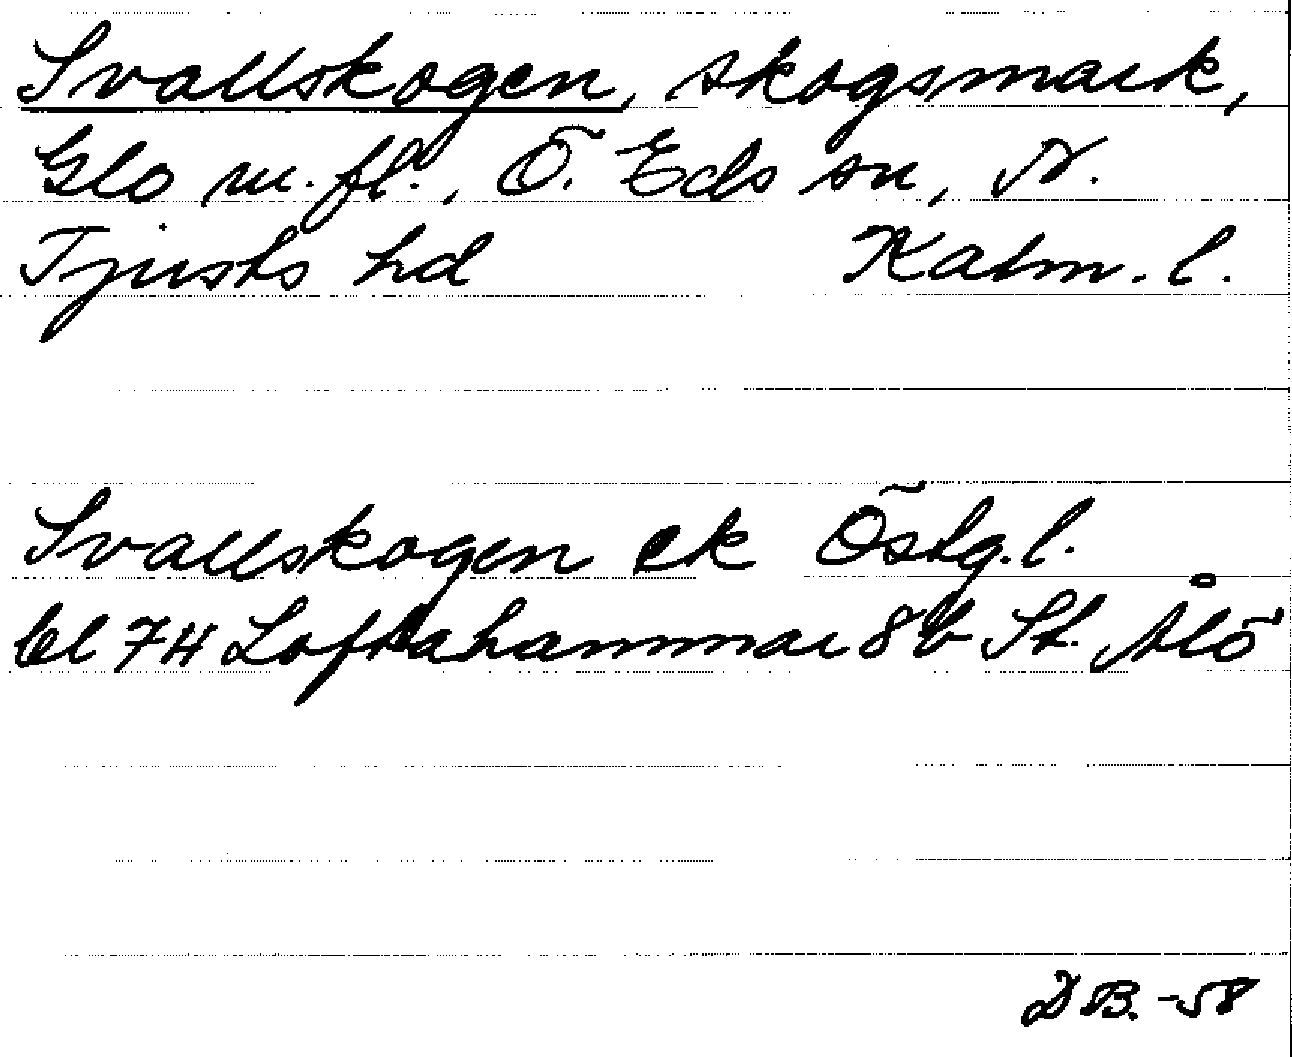 Svallskogen, skogsmark,
Glo m.fl., Ö. Eds sn, N.
Tjusts hd Kalm. l.
Svallskogen ek Östg. l.
bl 7H Loftahammar 8b St. Ålö
DB.-58